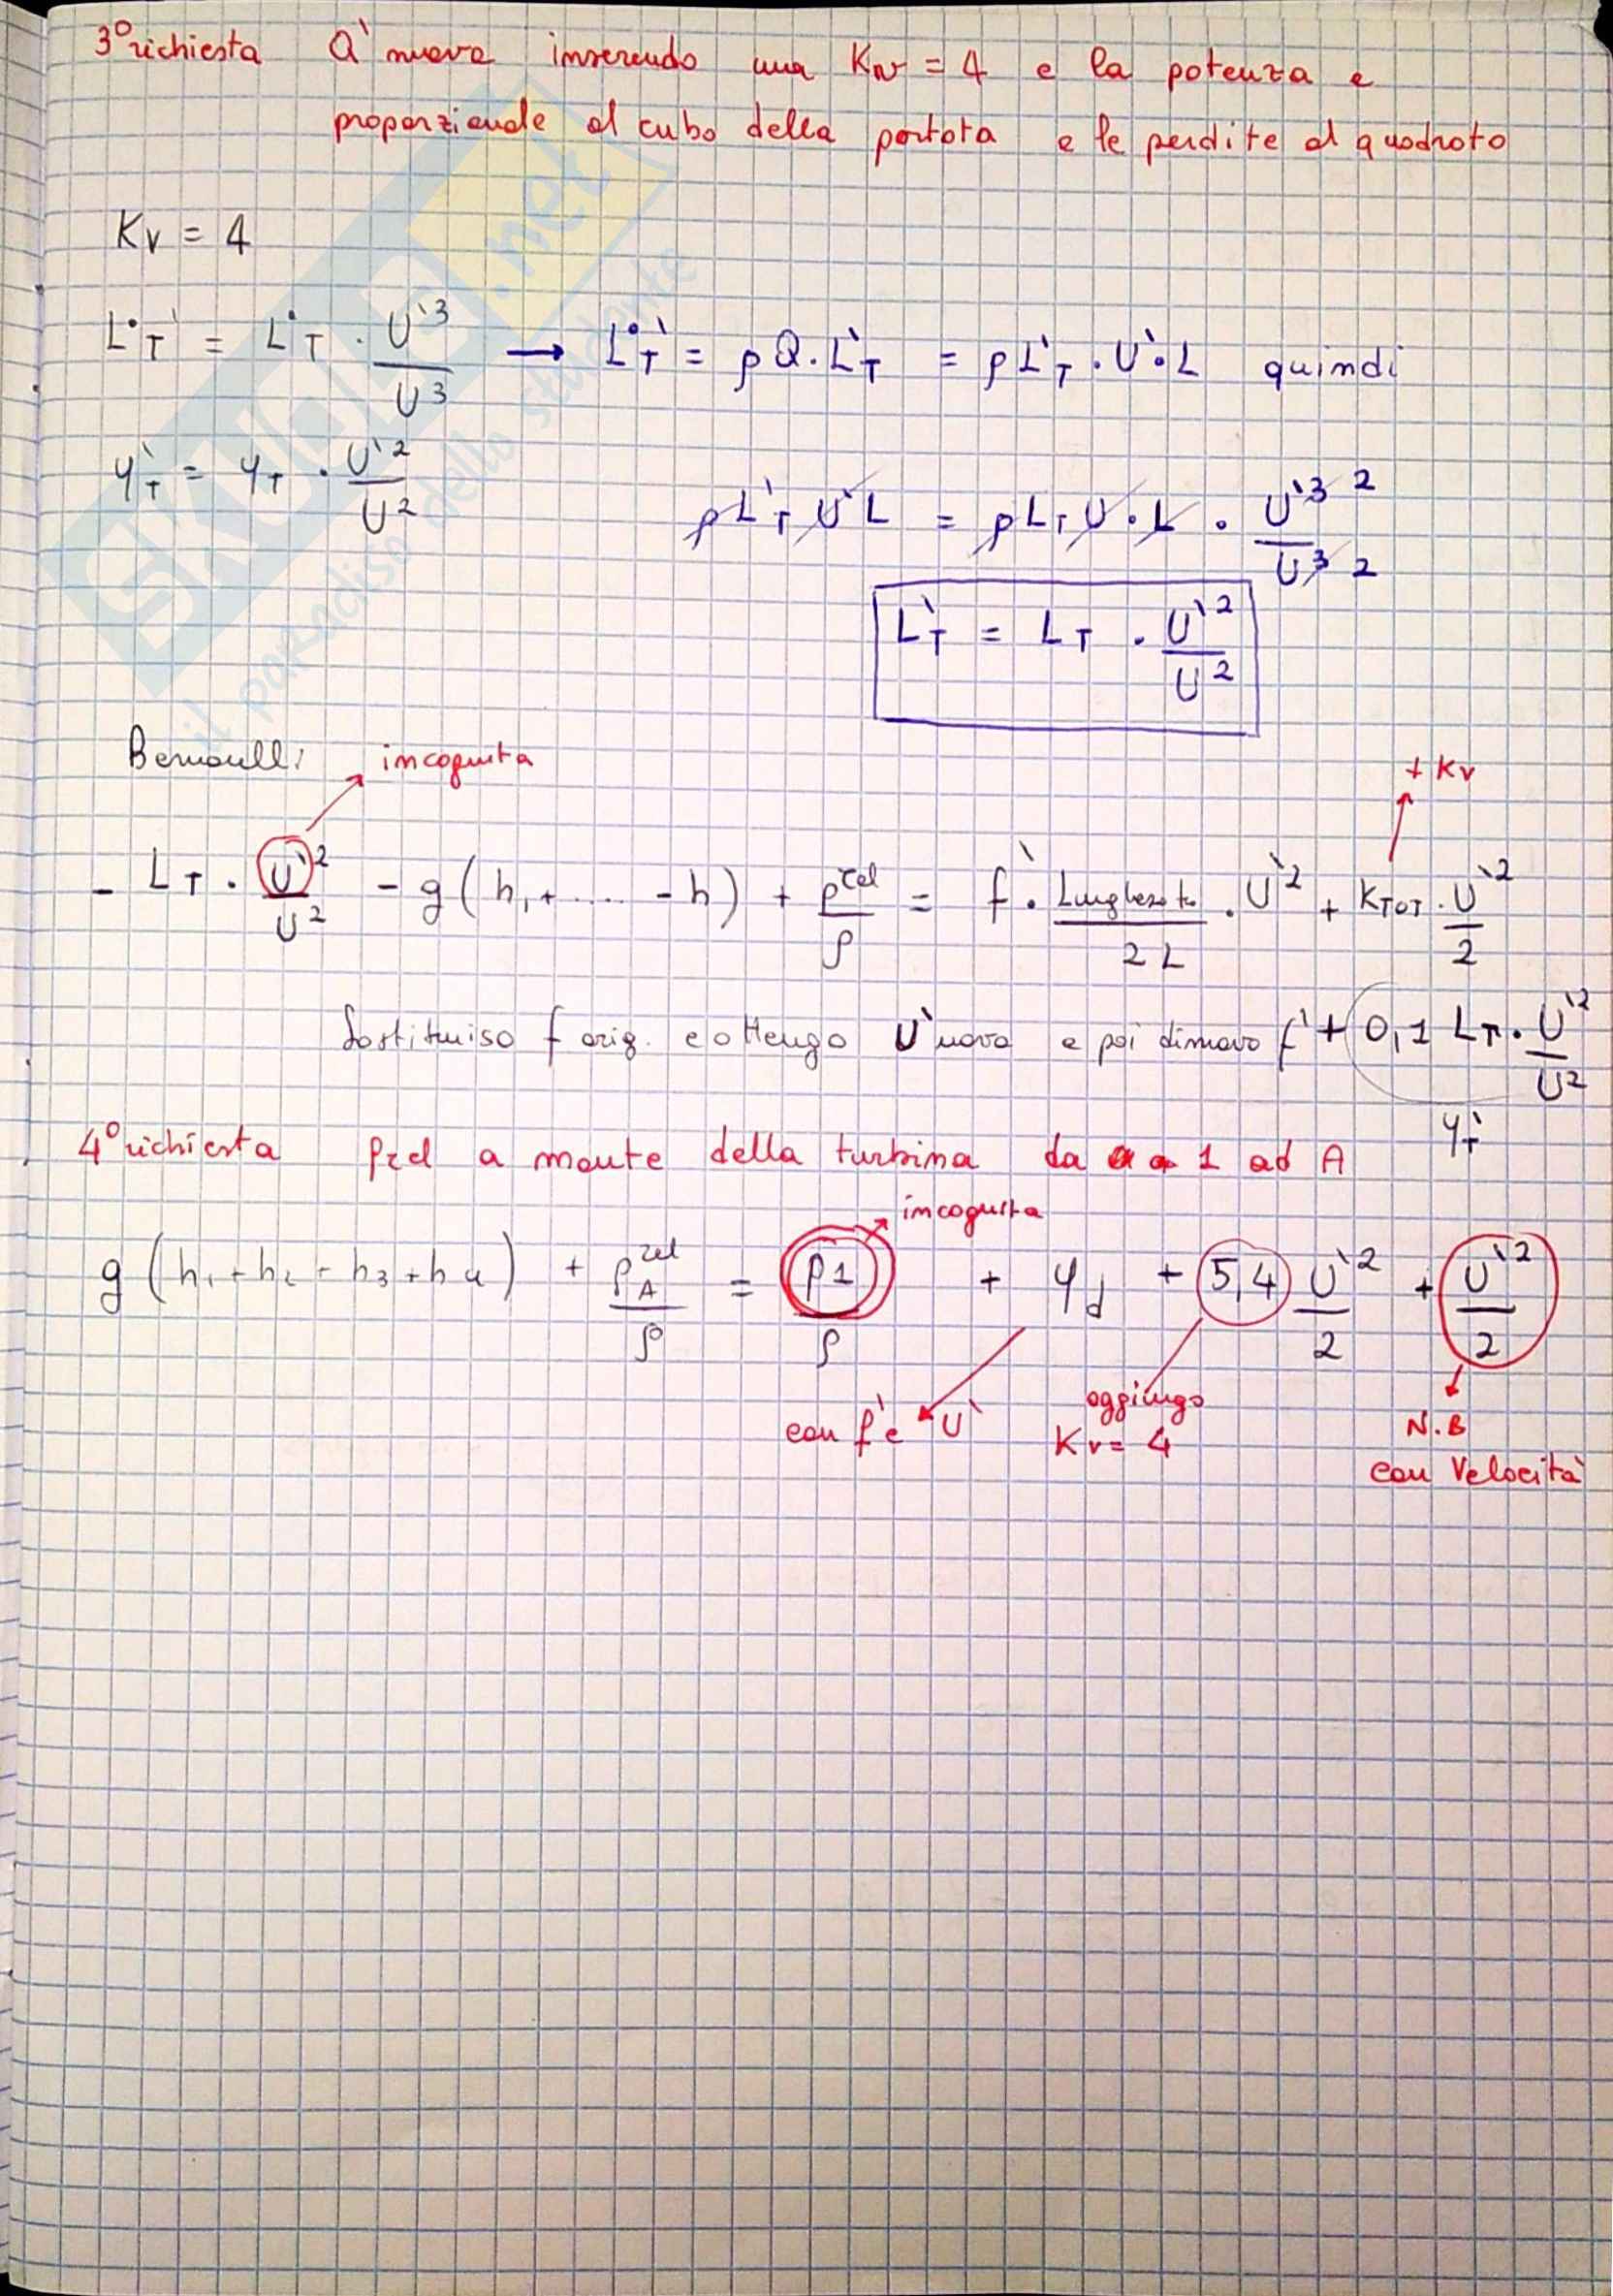 3° richiesta Q' nuova inserendo una Kv = 4 e la potenza e
proporzionale al cubo della portata e le perdite al quadrato
Kv = 4
L̇T' = L̇T · U'³/U³ → L̇T' = ρQ·L'T = ρL'T·U'·L quindi
φ'T = φT · U'²/U²
ρL'T U'L = ρLT U·L · U'³ ²/U³ ²
L'T = LT · U'²/U²
Bernoulli incognita + Kv
- LT · U'²/U² - g(h₁+.... -h) + p^rel/ρ = f' · Lunghezza/2L · U'² + KTOT · U'²/2
Sostituiso f orig. e ottengo U' nuova e poi f' + 0,1 LT · U'²/U²
φ'T
4° richiesta Prel a monte della turbina da 1 ad A
incognita
g(h₁+h₂-h₃+h₄) + pA^rel/ρ = p1/ρ + φd + 5,4 U'²/2 + U'²/2
con f' e U' aggiungo N.B
Kv= 4 con Velocità
SKUOLA.net
il paradiso dello studente